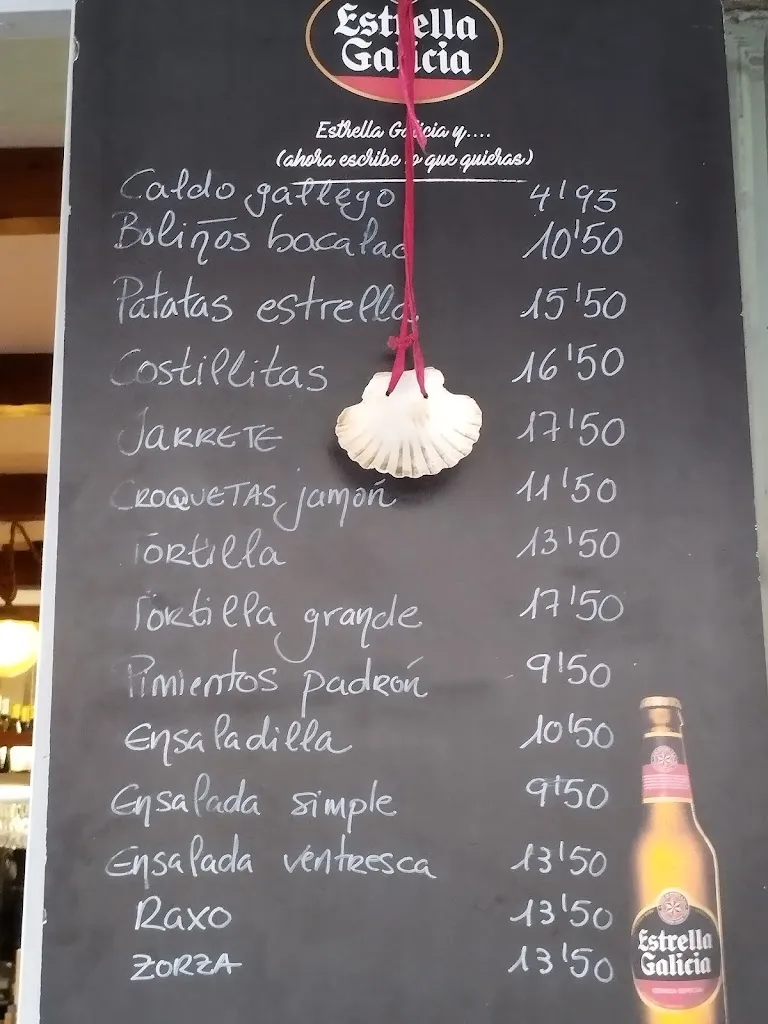 Estrella
Galicia
Estrella Galicia y....
(ahora escribe lo que quieras)
Caldo gallego 4'95
Boliños bacalao 10'50
Patatas estrella 15'50
Costillitas 16'50
JARRETE 17'50
CROQUETAS jamón 11'50
Tortilla 13'50
Tortilla grande 17'50
Pimientos padrón 9'50
Ensaladilla 10'50
Ensalada simple 9'50
Ensalada ventresca 13'50
RAXO 13'50
ZORZA 13'50
Estrella
Galicia